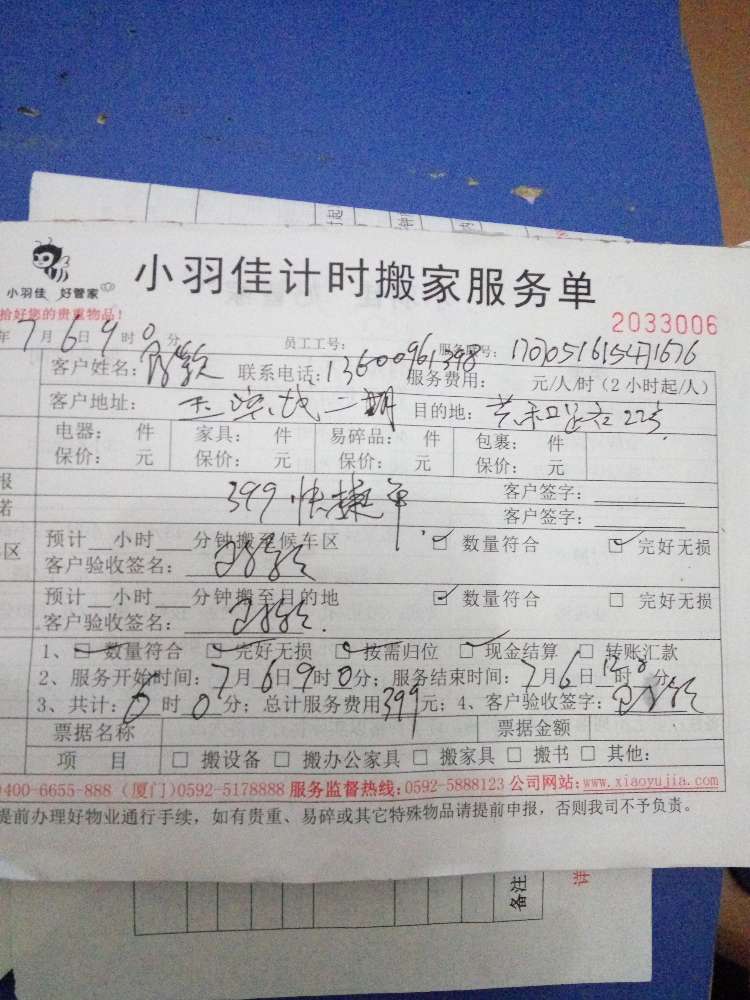 小羽佳 好管家
小羽佳计时搬家服务单
拾好您的贵重物品!
2033006
年7月6日9时0分 员工工号: 服务单号:
客户姓名: 联系电话:13600961398 服务费用: 元/人/时(2小时起/人)
客户地址: 二期 目的地:
电器: 件 家具: 件 易碎品: 件 包裹: 件
保价: 元 保价: 元 保价: 元 保价: 元
报 399快捷单 客户签字:
诺 客户签字:
区 预计 小时 分钟搬至候车区 数量符合 完好无损
客户验收签名:
预计 小时 分钟搬至目的地 数量符合 完好无损
客户验收签名:
1、数量符合 完好无损 按需归位 现金结算 转账汇款
2、服务开始时间:7月6日9时0分;服务结束时间:7月6日12时0分;
3、共计: 时0分;总计服务费用399元;4、客户验收签字:
票据名称 票据金额
项 目 搬设备 搬办公家具 搬家具 搬书 其他:
400-6655-888 (厦门)0592-5178888 服务监督热线:0592-5888123 公司网站:www.xiaoyujia.com
提前办理好物业通行手续,如有贵重、易碎或其它特殊物品请提前申报,否则我司不予负责。
备注
详